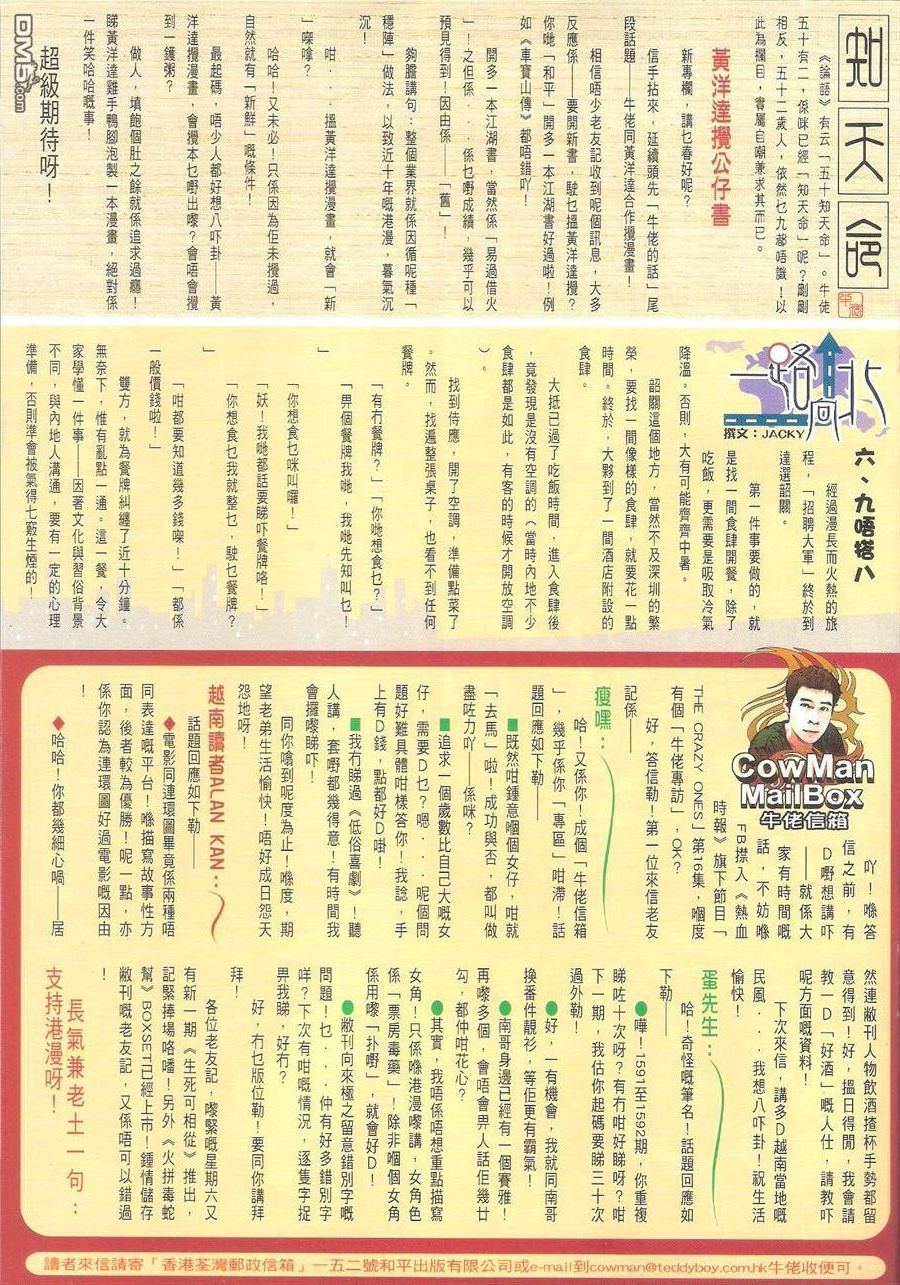 知天命
《論語》有云「五十知天命」。牛徙
五十有二，係咪已經「知天命」呢？剛剛
相反，五十二歲人，依然乜九都唔識！以
此為欄目，實屬自嘲兼求其而已。
黃洋達攪公仔書
新專欄，講乜春好呢？
信手拈來，延續頭先「牛佬的話」尾
段話題——牛佬同黃洋達合作攪漫畫！
相信唔少老友記收到呢個訊息，大多
反應係——要開新書，駛乜搵黃洋達攪？
你哋「和平」開多一本江湖書好過啦！例
如《車寶山傳》都唔錯吖！
開多一本江湖書，當然係「易過借火
」！之但係．．．係乜嘢成績，幾乎可以
預見得到！因由係——「舊」！
夠膽講句：整個業界就係因循呢種「
穩陣」做法，以致近十年嘅港漫，暮氣沉
沉！
咁．．．搵黃洋達攪漫畫，就會「新
」㗎嗱？
哈哈！又未必！只係因為佢未攪過，
自然就有「新鮮」嘅條件！
最起碼，唔少人都好想八吓卦——黃
洋達攪漫畫，會攪本乜嘢出嚟？會唔會攪
到一鑊粥？
做人，填飽個肚之餘就係追求過癮！
睇黃洋達雞手鴨腳泡製一本漫畫，絕對係
一件笑哈哈嘅事！
超級期待呀！
DM5.com
一路向北
撰文：JACKY
六、九唔搭八
經過漫長而火熱的旅
程，「招聘大軍」終於到
達選韶關。
第一件事要做的，就
是找一間食肆開餐，除了
吃飯，更需要是吸取冷氣
降溫。否則，大有可能齊齊中暑。
韶關這個地方，當然不及深圳的繁
榮，要找一間像樣的食肆，就要花一點
時間。終於，大夥到了一間酒店附設的
食肆。
大抵已過了吃飯時間，進入食肆後
，竟發現是沒有空調的（當時內地不少
食肆都是如此，有客的時候才開放空調
）。
找到侍應，開了空調，準備點菜了
。然而，找遍整張桌子，也看不到任何
餐牌。
「有冇餐牌？」「你哋想食乜？」
「畀個餐牌我哋，我哋先知叫乜！
」
「你想食乜咪叫囉！」
「妖！我哋都話要睇吓餐牌咯！」
「你想食乜我就整乜，駛乜餐牌？
」
「咁都要知道幾多錢㗎！」「都係
一般價錢啦！」
雙方，就為餐牌糾纏了近十分鐘。
無奈下，惟有亂點一通。這一餐，令大
家學懂一件事——因著文化與習俗背景
不同，與內地人溝通，要有一定的心理
準備，否則準會被氣得七竅生煙的！
CowMan
MailBox
牛佬信箱
吖！喺答
信之前，有
D嘢想講吓
——就係大
家有時間嘅
話，不妨喺
FB㩒入《熱血
時報》旗下節目「
THE CRAZY ONES」第16集，嗰度
有個「牛佬專訪」，OK？
好，答信勒！第一位來信老友
記係——
瘦嘿：
哈！又係你！成個「牛佬信箱
」，幾乎係你「專區」咁滯！話
題回應如下勒——
■既然咁鍾意嗰個女仔，咁就
「去馬」啦！成功與否，都叫做
盡咗力吖——係咪？
■追求一個歲數比自己大嘅女
仔，需要D乜？嗯．．．呢個問
題好難具體咁樣答你！我諗，手
上有D錢，點都好D啩！
■我冇睇過《低俗喜劇》！聽
人講，套嘢都幾得意！有時間我
會攞嚟睇吓！
同你噏到呢度為止！喺度，期
望老弟生活愉快！唔好成日怨天
怨地呀！
越南讀者ALAN KAN：
話題回應如下勒——
◆電影同連環圖畢竟係兩種唔
同表達嘅平台！喺描寫故事性方
面，後者較為優勝！呢一點，亦
係你認為連環圖好過電影嘅因由
！
◆哈哈！你都幾細心喎——居
然連敝刊人物飲酒揸杯手勢都留
意得到！好，搵日得閒，我會請
教一D「好酒」嘅人仕，請教吓
呢方面嘅資料！
下次來信，講多D越南當地嘅
民風．．．我想八吓卦！祝生活
愉快！
蛋先生：
哈！奇怪嘅筆名！話題回應如
下勒——
●嘩！1591至1592期，你重複
睇咗十次呀？有冇咁好睇呀？咁
下一期，我估你起碼要睇三十次
過外勒！
●好，一有機會，我就同南哥
換番件靚衫，等佢更有霸氣！
●南哥身邊已經有一個賽雅！
再嚟多個，會唔會畀人話佢幾廿
勾，都仲咁花心？
●其實，我唔係唔想重點描寫
女角！只係喺港漫嚟講，女角色
係「票房毒藥」！除非嗰個女角
係用嚟「扑嘢」，就會好D！
●敝刊向來極之留意錯別字嘅
問題！乜．．．仲有好多錯別字
咩？下次有咁嘅情況，逐隻字捉
畀我睇，好冇？
好，冇乜版位勒！要同你講拜
拜！
各位老友記，嚟緊嘅星期六又
有新一期《生死可相從》推出，
記緊捧場咯噃！另外《火拼毒蛇
幫》BOXSET已經上市！鍾情儲存
敝刊嘅老友記，又係唔可以錯過
！
長氣兼老土一句：
支持港漫呀！
讀者來信請寄「香港荃灣郵政信箱」一五二號和平出版有限公司或e-mail到cowman@teddyboy.com.hk牛佬收便可。